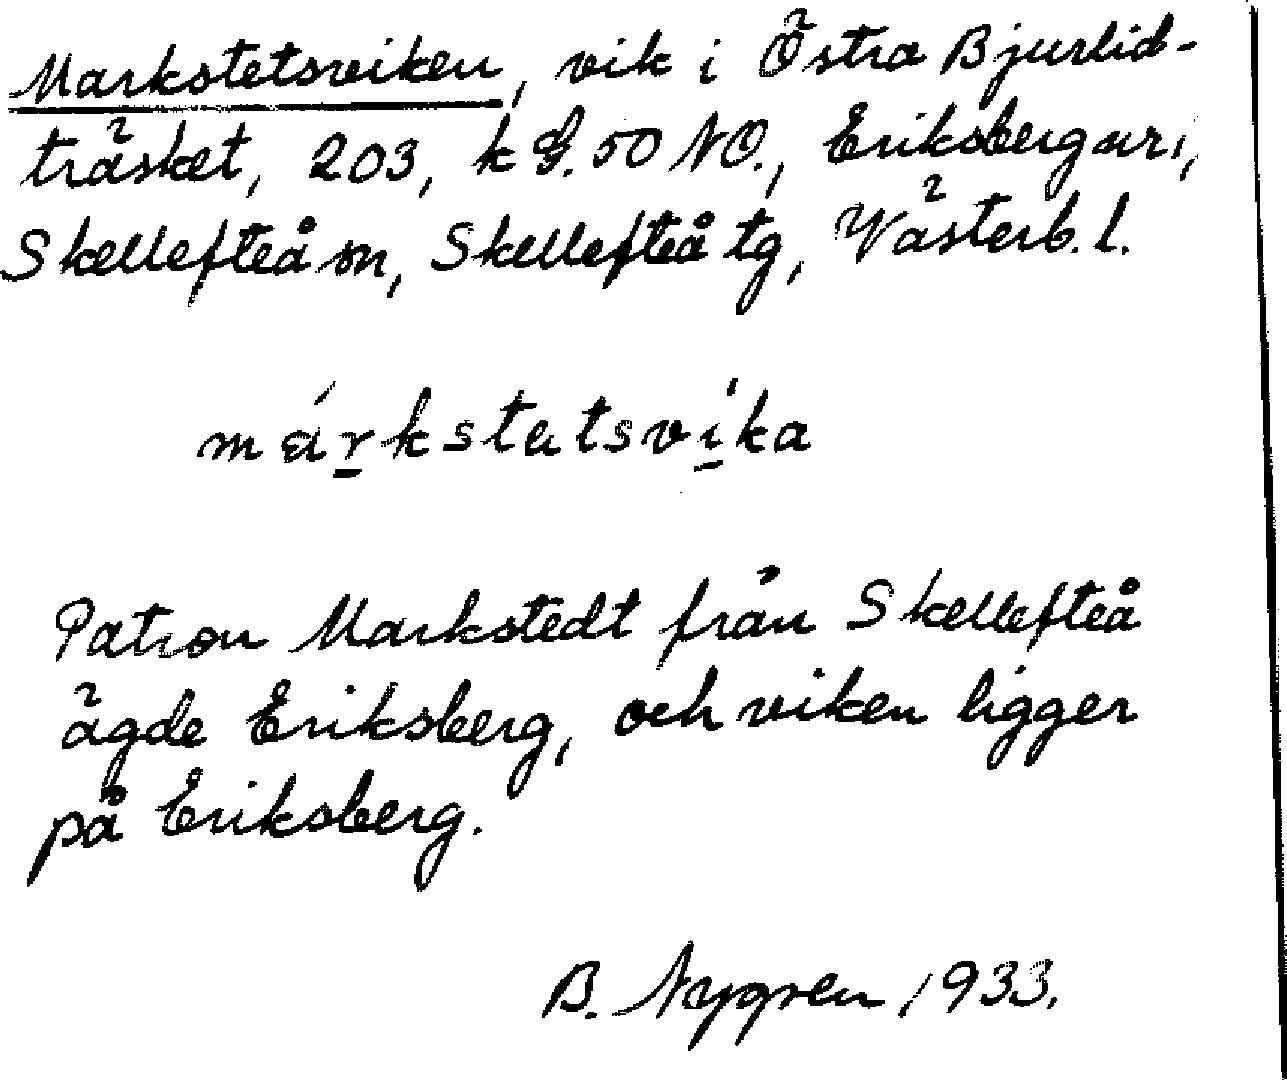 Markstetsviken, vik i Östra Bjurlid-
träsket, 203, k G. 50 NO., Eriksberg nr 1,
Skellefteå sn, Skellefteå tg, Västerb. l.
márkstetsvika
Patron Markstedt från Skellefteå
ägde Eriksberg, och viken ligger
på Eriksberg.
B. Nygren 1933.